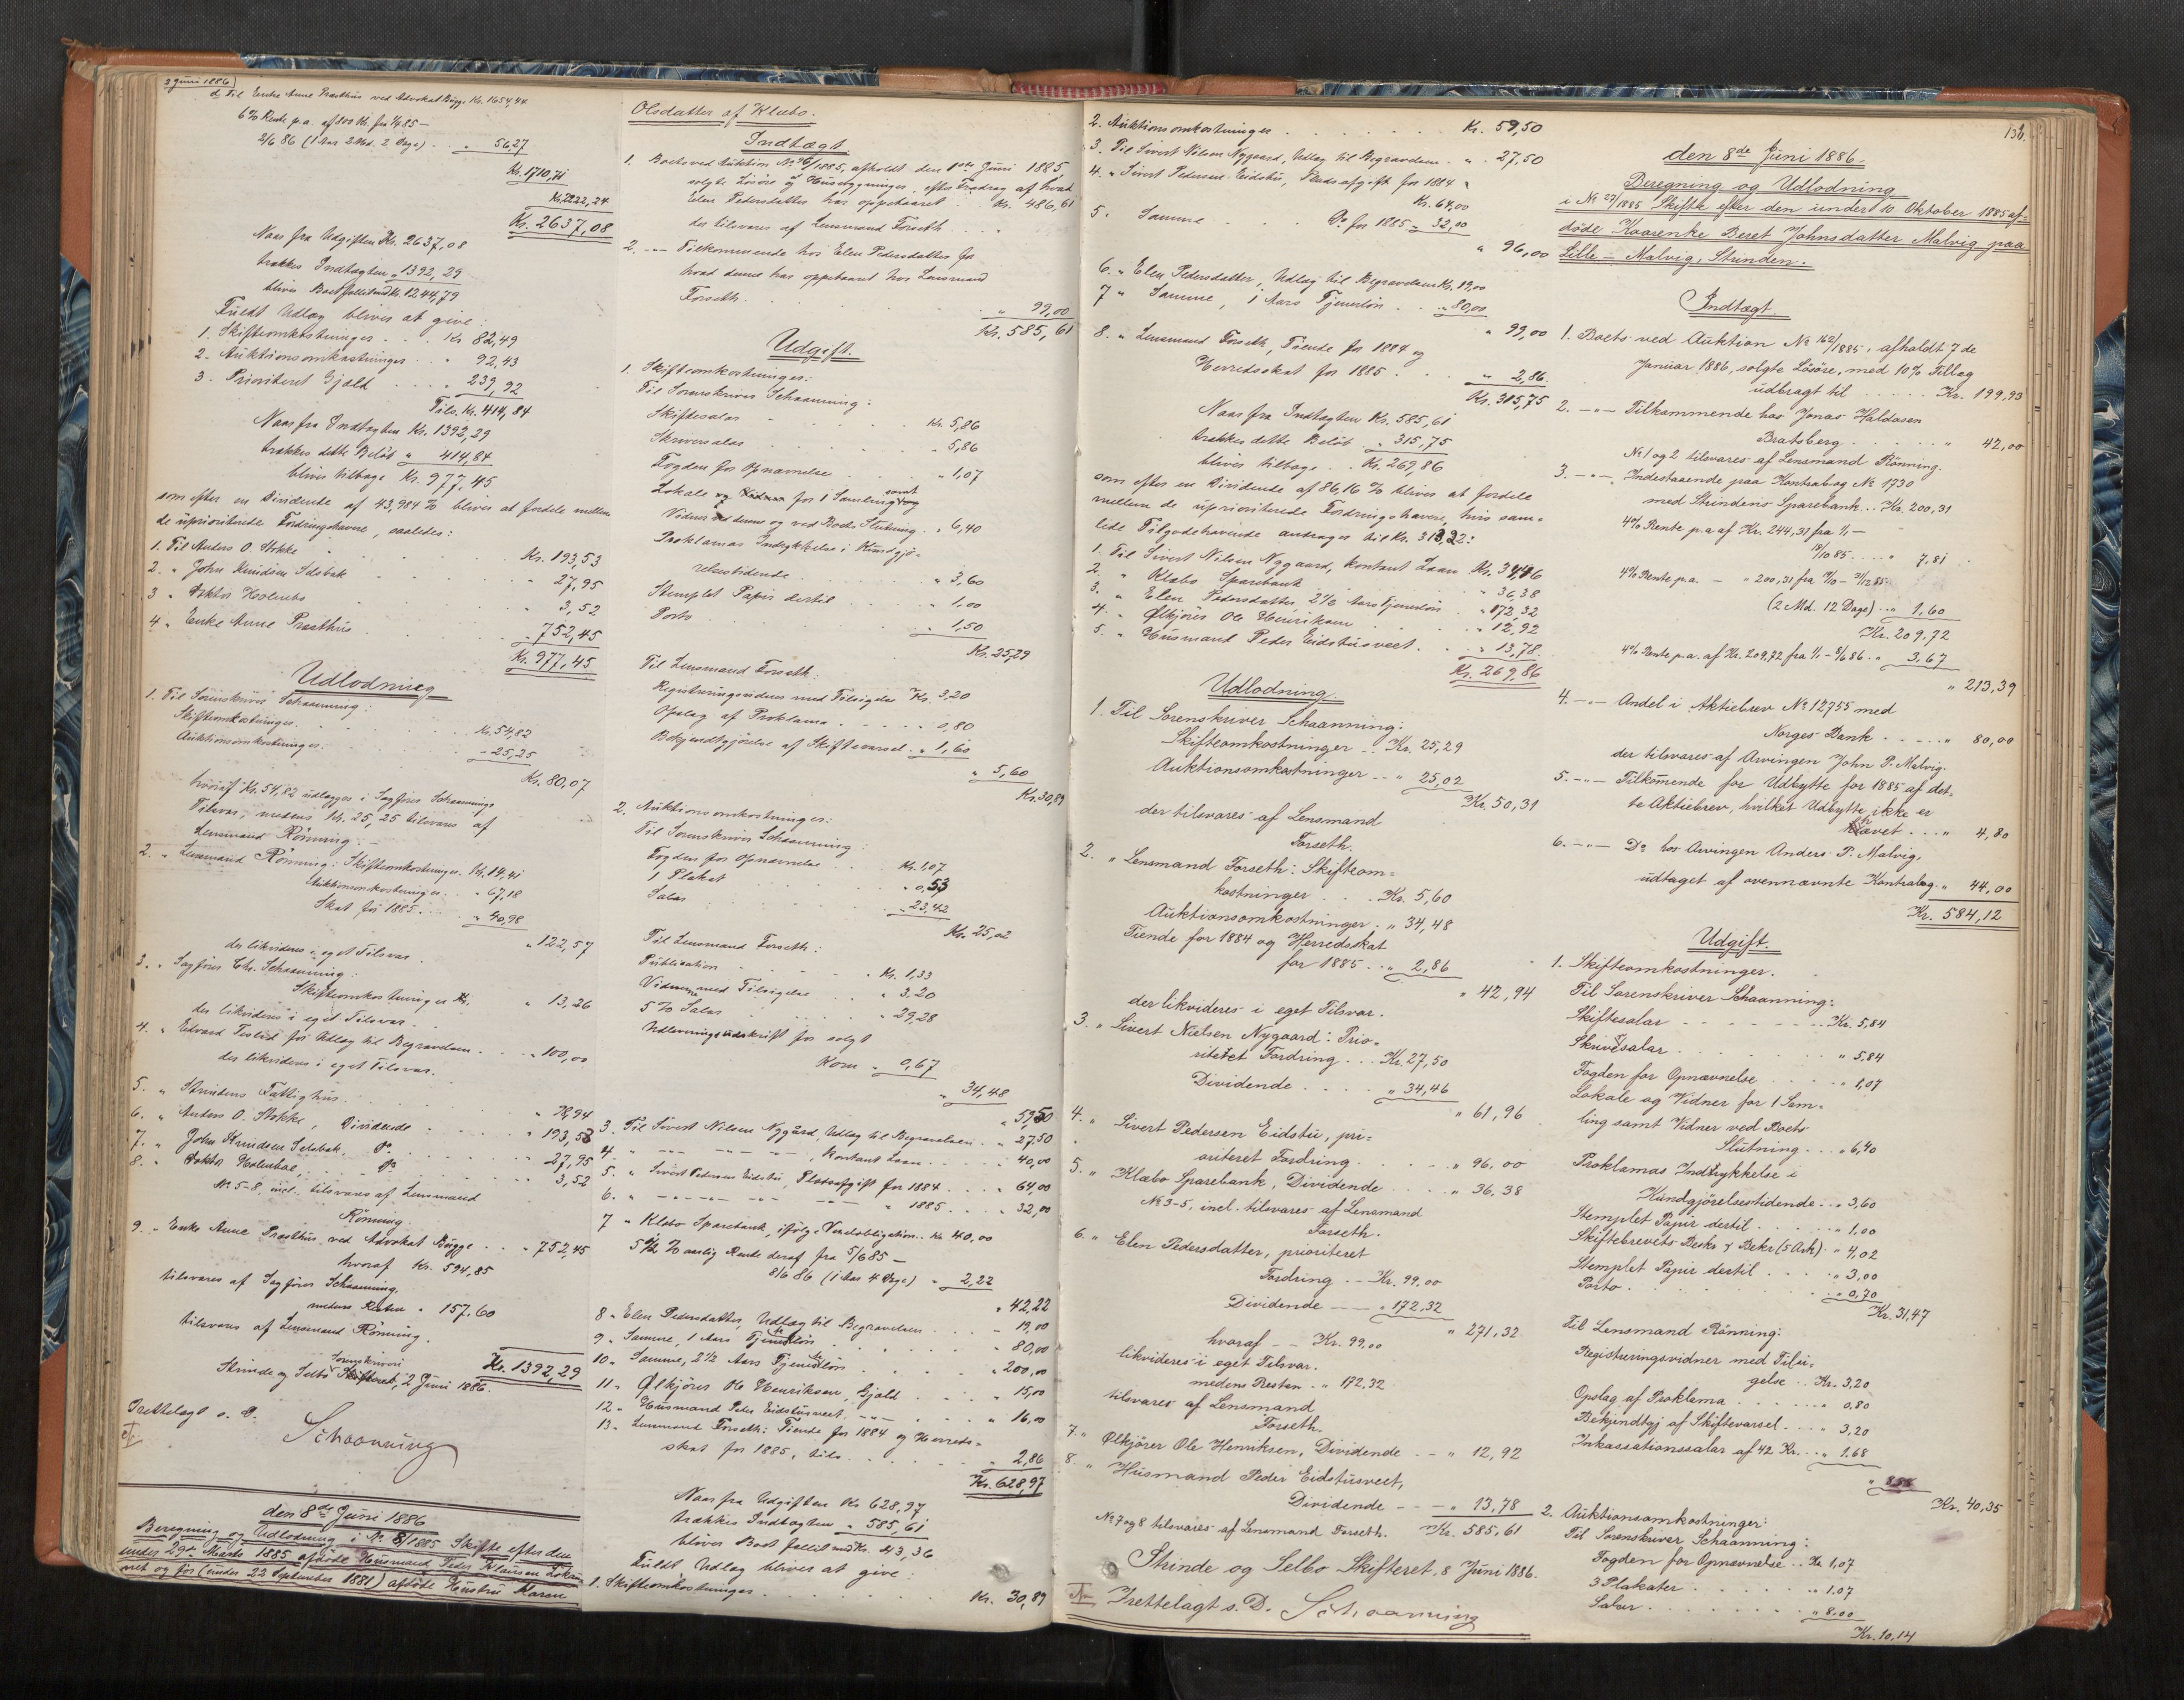 2 Juni 1886)
d, Til Enke Anne Præsthus ved Advokat Bugge Kr. 1654,44
6 % Rente p.a. af 800 Kr. fra 1/4 85 –
2/6 86 (1 Aar 2 Md. 2 Dage) . . „ 56,27
Kr. 1710,71
Kr. 2222,24
Kr. 2637,08
Naar fra Udgiften Kr. 2637,08
trækkes Indtægten „ 1392,29
bliver Boet fallit med Kr. 1244,79
Fuldt Udlæg bliver at give:
1. Skifteomkostninger . . . Kr 82,49
2. Auktionsomkostninger . . „ 92,43
3. Prioriteret Gjæld . . . . „ 239,92
Tils. Kr. 414,84
Naar fra Indtægten Kr. 1392,29
trækkes dette Beløb „ 414,84
bliver tilbage Kr. 977,45
som efter en Dividende af 43,984 % bliver at fordele mellem
de uprioriterede Fordringshavere, saaledes:
1. Til Anders O. Stokke . . . Kr. 193,53
2. „ John Knudsen Selsbak . . . „ 27,95
3 „ Doktor Holmboe . . . „ 3,52
4 „ Enke Anne Præsthus . . . „ 752,45
Kr. 977,45
Udlodning
1. Til Sorenskriver Schaanning:
Skifteomkostninger. . . . Kr. 54,82
Auktionsomkostninger: . . . „ 25,25
Kr. 80,07
hvoraf Kr. 54,82 udlægges i Sagfører Schaannings
Tilsvar, medens Kr. 25,25 tilsvares af
Lensmand Rönning. –
2. „ Lensmand Rönning: Skifteomkostninger. Kr. 14,41
Auktionsomkostninger. . „ 67,18
Skat for 1885. . . „ 40,98
„ 122,57
der likvideres i eget Tilsvar.
3. „ Sagfører Chr. Schaanning:
Skifteomkostninger Kr. „ 13,26
der likvideres i eget Tilsvar.
4. „ Edvard Teslid for Udlæg til Begravelsen . . . „ 100,00
der likvideres i eget Tilsvar.
5. „ Strindens Fattighus . . . „ 98,94
6. „ Anders O. Stokke, Dividende . . . „ 193,53
7. „ John Knudsen Selsbak. Do. . . . „ 27,95
8. „ Doktor Holmboe, . . Do . . . „ 3,52
No 5-8 incl. tilsvares af Lensmand
Rönning.
9. „ Enke Anne Præsthus ved Advokat Bugge . . „ 752,45
hvoraf Kr. 594,85
tilsvares af Sagfører Schaanning,
medens Resten „ 157.60
tilsvares af Lensmand Rönning.
Kr. 1392,29
Strinde og Selbo Sorenskriveri, 2 Juni 1886.
Frettelagt s. D.
Schaanning
den 8de Juni 1886
Beregning og Udlodning i No 8/1885 Skifte efter den
under 29de Marts 1885 afdøde Husmand Peder Klausen
vet og før (under 23 September 1881) afdöde Hustru Karen
Olsdatter af Klæbo.
Indtægt
1. Boets ved Auktion No 76/1885, afholdt den 1ste Juni 1885,
solgte Lösöre og Husbygninger, efter Fradrag af hvad
Elen Pedersdatter har oppebaaret . . Kr. 486,61
der tilsvares af Lensmand Forseth . .
2. –„– Tilkommende hos Elen Pedersdatter for
hvad denne har oppebaaret hos Lensmand
Forseth. . . . „ 99,00
Kr. 585,61
Udgift.
1. Skifteomkostninger:
Til Sorenskriver Schaanning:
Skiftesalær . . . Kr. 5,86
Skriversalær . . . „ 5,86
Fogden for Opnævnelse . . . „ 1,07
Lokale for 1 Samling samt
Vidner ved denne og ved Boets Slutning . „ 6,40
Proklamas Indrykkelse i Kundgjø-
relsestidende . . . „ 3,60
Stemplet Papir dertil . . . „ 1,00
Porto . . . „ 1,50
Kr. 25,29
Til Lensmand Forseth:
Registreringsvidner med Tilsigelse Kr. 3.20
Opslag af Proklama . . . „ 0,80
Bekjendtgjörelse af Skiftevarsel . „ 1,60
„ 5,60
Kr. 30,89
2. Auktionsomkostninger:
Til Sorenskriver Schaanning:
Fogden for Opnævnelse . . . Kr. 1,07
1 Plakat . . . „ 0,53
Salær . . . „ 23,42
Kr. 25,02
Til Lensmand Forseth:
Publication . . . Kr. 1,33
Vidner med Tilsigelse . . . „ 3,20
5 % Salær . . . „ 29,28
Udleveringsudskrift for solgt
Korn „ 0,67
„ 34,48
„ 59,50
3. Til Sivert Nilsen Nygård, Udlæg til Begravelsen . . „ 27,50
4. „ –„– –„– , kontant Laan . . . „ 40,00
5. „ Sivert Pedersen Eidstu, Pladsafgift for 1884 . . „ 64,00
6. „ –„– –„– –„– „ 1885 . . „ 32,00
7 „ Klæbo Sparebank, ifölge Vexelobligation. Kr 40,00
5 1/2 % aarlig Rente deraf fra 5/6 85 –
8/6 86 (1 Aar 4 Dage) „ 2,22
„ 42,22
8 „ Elen Pedersdatter, Udlæg til Begravelsen . . . – 19,00
9 „ Samme, 1 Aars Tjenerlön . . . „ 80,00
10 „ Samme, 2 1/2 Aars Tjenerlön . . . „ 200,00
11 „ Ølkjörer Ole Henriksen, Gjæld . . . „ 15,00
12 „ Husmand Peder Eidstusveet, –„– . . . „ 16,00
13 „ Lensmand Forseth: Tiende for 1884 og Herreds-
skat for 1885, tils. . . . „ 2,86
Kr. 628,97
Naar fra Udgiften Kr 628,97
trækkes Indtægten „ 585,61
bliver Boet fallit med Kr. 43,36
Fuldt Udlæg bliver at give:
1. Skifteomkostninger . . . Kr. 30,89
2. Auktionsomkostninger . . . Kr. 59,50
3. Til Sivert Nilsen Nygaard, Udlæg til Begravelsen . „ 27,50
4. „ Sivert Pedersen Eidstu, Pladsafgift for 1884
Kr. 64,00
5. „ Samme . . . Do for 1885 „ 32,00
„ 96,00
6. „ Elen Pedersdatter, Udlæg til Begravelsen Kr. 19,00
7 „ Samme, 1 Aars Tjenerløn . . „ 80,00
„ 99,00
8. „ Lensmand Forseth, Tiende for 1884 og
Herredsskat for 1885 . . . „ 2,86.
Kr. 315,75
Naar fra Indtægten Kr. 585,61
trækkes dette Belöb . „ 315,75
bliver tilbage . . Kr. 269,86
som efter en Dividende af 86,16 % bliver at fordele
mellem de uprioriterede Fordringshavere, hvis sam-
lede Tilgodehavende andrager til Kr. 313,22:
1. Til Sivert Nilsen Nygaard, kontant Laan Kr. 34,46
2. „ Klæbo Sparebank . . . „ 36,38
3. „ Elen Pedersdatter, 2 1/2 Aars Tjenerlön . „ 172,32
4. „ Ølkjörer Ole Henriksen . . . „ 12,92
5. „ Husmand Peder Eidstusveet . . . „ 13,78.
Kr. 269,86
Udlodning.
1. Til Sorenskriver Schaanning:
Skifteomkostninger . . Kr. 25,29
Auktionsomkostninger . . „ 25,02
Kr. 50,31
der tilsvares af Lensmand
Forseth.
2. „ Lensmand Forseth: Skifteom-
kostninger . . . Kr. 5,60
Auktionsomkostninger . „ 34,48
Tiende for 1884 og Herredsskat
for 1885 . . „ 2,86
„ 42,94
der likvideres i eget Tilsvar.
3. „ Sivert Nielsen Nygaard: Prio-
riteret Fordring . . . Kr. 27,50
Dividende . . . „ 34,46
„ 61,96
4. „ Sivert Pedersen Eidstu, pri-
oriteret Fordring . . . „ 96.00
5. „ Klæbo Sparebank, Dividende . . . „ 36.38
No 3-5, incl. tilsvares af Lensmand
Forseth.
6. „ Elen Pedersdatter, prioriteret
Fordring . . Kr. 99.00
Dividende – – „ 172,32
„ 271,32
hvoraf – – Kr. 99,00
likvideres i eget Tilsvar.
medens Resten . „ 172,32
tilsvares af Lensmand
Forseth.
7 „ Ølkjörer Ole Henriksen, Dividende – – „ 12,92
8. „ Husmand Peder Eidstusveet,
Dividende – – – „ 13,78
No 7 og 8 tilsvares af Lensmand Forseth. Kr. 585,61
Strinde og Selbo Skifteret, 8 Juni 1886.
Frettelagt s. D. Schaanning
136.
den 8de Juni 1886.
Beregning og Udlodning
i No 27/1885 Skifte efter den under 10 Oktober 1885 af-
döde Kaarenke Beret Johnsdatter Malvig paa
Lille-Malvig, Strinden.
Indtægt
1. Boets ved Auktion No 162/1885, afholdt 7de
Januar 1886, solgte Lösöre, med 10 % Tillæg
udbragt til . . . Kr. 199,93
2. –„– Tilkommende hos Jonas Haldosen
Bratsberg . . . „ 42,00
No 1 og 2 tilsvares af Lensmand Rönning.
3. –„– Indestaaende paa Kontrabog No 1730
med Strindens Sparebank . . Kr. 200,31
4 % Rente p.a af Kr. 244,31 fra 1/1 –
19/10 85 . . . „ 7,81
4 % Rente p.a. – „ 200,31 fra 19/10 – 31/12 85
(2 Md. 12 Dage) . . „ 1,60
Kr. 209.72
4 % Rente p.a. af Kr. 209,72 fra 1/1 – 8/6 86. „ 3,67
„ 213,39
4. –„– Andel i Aktiebrev No 12755 med
Norges Bank . . . „ 80,00
der tilsvares af Arvingen John P. Malvig.
5. –„– Tilkommende for Udbytte for 1885 af det-
te Aktiebrev, hvilket Udbytte ikke er
hævet . . . „ 4,80
6. –„– Do hos Arvingen Anders P. Malvig,
udtaget af ovennævnte Kontrabog . „ 44,00
Kr. 584,12
Udgift.
1. Skifteomkostninger.
Til Sorenskriver Schaanning:
Skiftesalær . . . Kr. 5,84
Skriversalær . . . „ 5,84
Fogden for Opnævnelse . . . „ 1,07
Lokale og Vidner for 1 Sam-
ling samt Vidner ved Boets
Slutning . . . „ 6,40
Proklamas Indrykkelse i
Kundgjörelsestidende . . „ 3,60
Stemplet Papir dertil . . . „ 1,00
Skiftebrevets Beskr. & Bekr (5 Ark) . „ 4,02
Stemplet Papir dertil . . . „ 3,00
Porto . . . „ 0,70
Kr. 31,47
Til Lensmand Rönning:
Registreringsvidner med Tilsi-
gelse . . Kr. 3,20
Opslag af Proklama . . . „ 0,80
Bekjendtgj. af Skiftevarsel . . . „ 3,20
Inkassationssalær af 42 Kr. . . „ 1.68
„ 8,88
Kr. 40,35
2. Auktionsomkostninger:
Til Sorenskriver Schaanning:
Fogden for Opnævnelse . . Kr 1,07
3 Plakater . . . „ 1.07
Salær . . . „ 8,00
Kr. 10,14